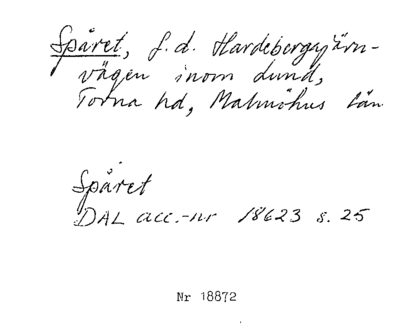 Spåret, f.d. Hardebergajärn-
vägen inom Lund,
Torna hd, Malmöhus län
Spåret
DAL acc.-nr 18623 s. 25
Nr 18872